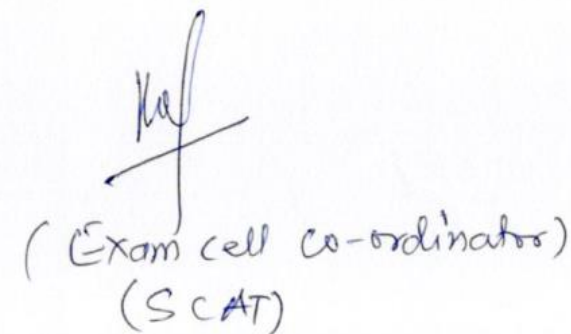 ( Exam cell co-ordinator)
(SCAT)